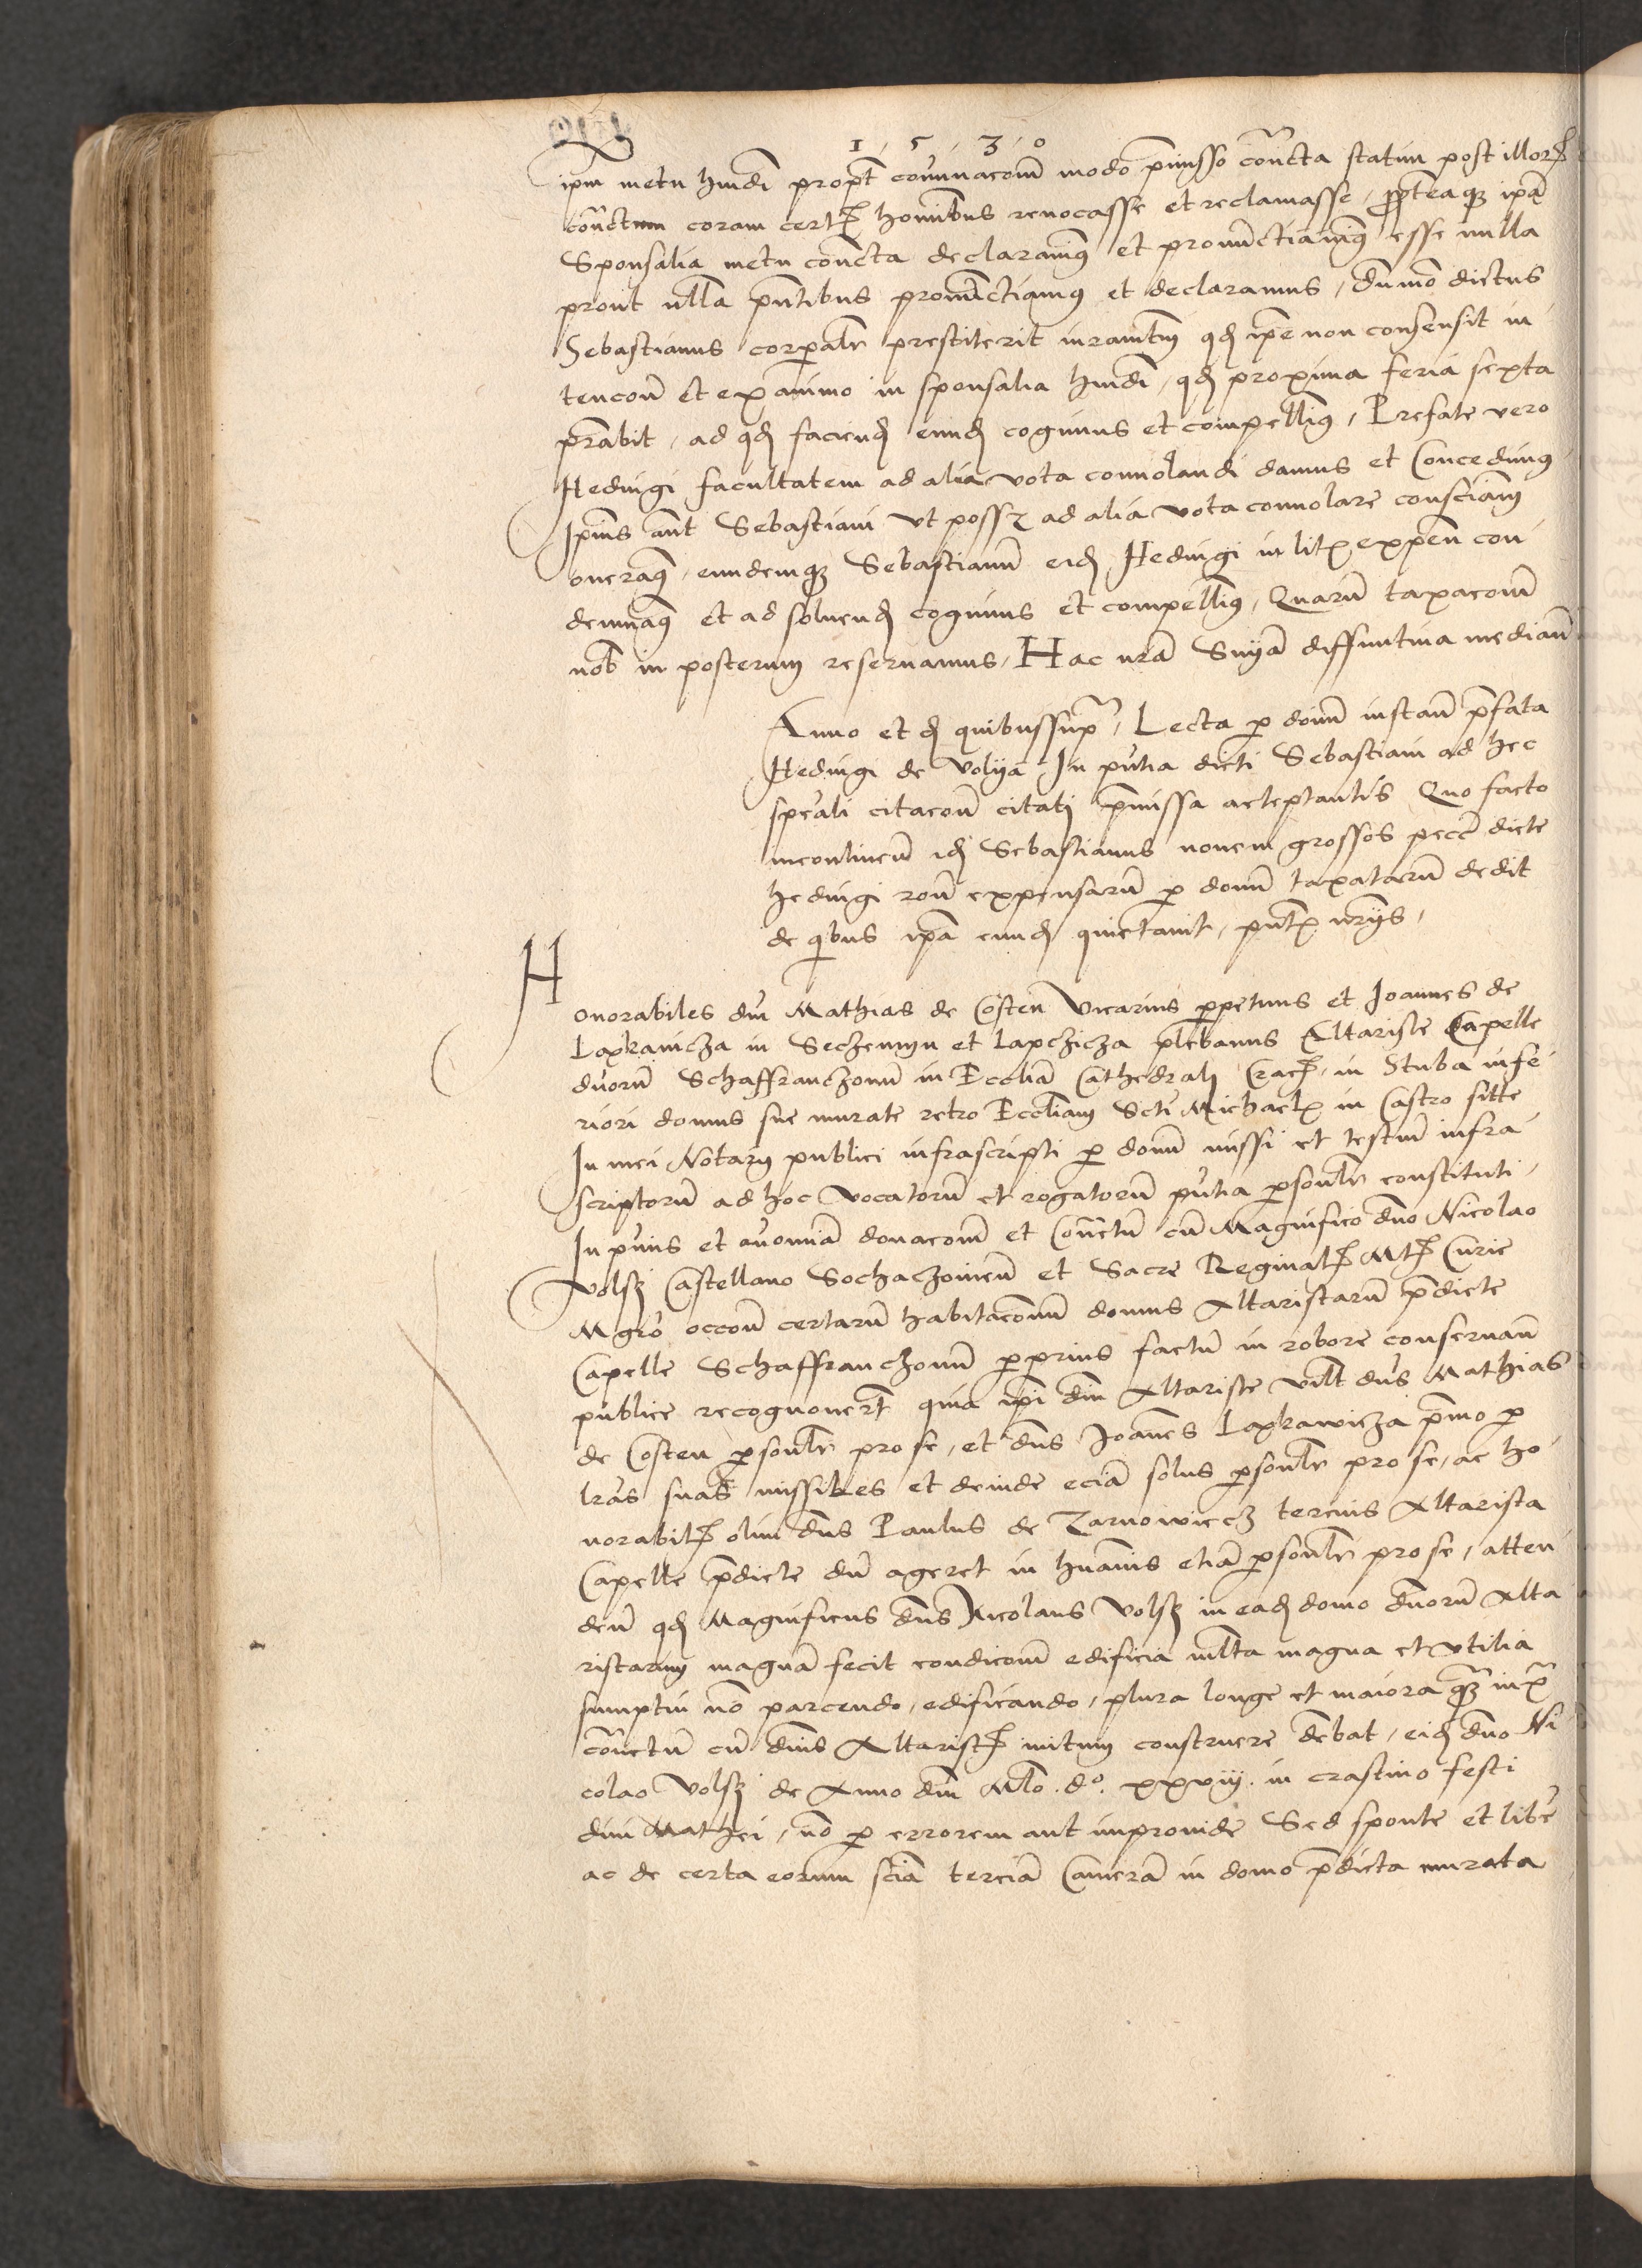 1 . 5 . 3 . 0
ipm metu hmdi propt cominacom modo pmisso concta statim post illor
conctum coram cert homibus reuocasse et reclamasse, propteaq ipa
Sponsalia metu concta declaraimus et pronunctiauimus esse nulla
prout nlla pntibus pronunctiamus et declaramus, dumo dictus
Sebastianus corporalr prestiterit iuramtm qd ipe non consensit in
tencom et ex animo in sponsalia hmdi, qd proxima feria sexta
prabit, ad qd faciend eund cogimus et compellimus, Prefate vero
Heduigi facultatem ad alia vota conuolandi damus et Concedimus
Ipius aut Sebastiani vt possz ad alia vota conuolare consciam
oneramus, eundemq Sebastianum eid Heduigi in lit expen con
demnamus et ad soluend cogimus et compellimus, Quarum taxacom
nob in posterum reseruamus, Hac nra Snia diffinitiua median
Anno et d quibussupra, Lecta p donum instan pfata
Heduigi de Volya In pntia dicti Sebastiani ad hec
speali citacom citati pmissa acceptantis Quo facto
incontinen id Sebastianus nouem grossos pecc dicte
heduigi rone expensarum p donum taxatarum dedit
de qibus ipa eund quietauit, pntib nrys,
Honorabiles dni Mathias de Costen Vicarius perpetuus et Joannes de
Lapkawicza in Seczemyn et Lapczicza plebanus Altariste Capelle
duorum Schaffranczonum in Ecclia Cathedrali Crac, in Stuba infe
riori domus sue murate retro Eccliam Scti Michaelis in Castro sitte
In mei Notarij publici infrascripti p donum missi et testium infra
scriptorum ad hoc vocatorum et rogatorum pntia psonlr constituti,
In pmis et auomia donacom et Conctum cum Magnifico dno Nicolao
Volsz Castellano Sochaczoiuen et Sacre Reginal Mt Curie
Mgro occom certarum habitaconum domus Altaristarum pdicte
Capelle Schaffranczonum perprius factum in robore conseruan
publice recognouert quia ipi dni Altariste vidlt dns Mathias
de Costen psonlr pro se, et dns Joannes Lapkawicza pmo p
lras suas missibles et deinde ecia solus psonlr pro se, ac ho
norabil olim dns Paulus de Zarnowiecz tercius Altarista
Capelle pdicte dum ageret in humanis etiam psonlr pro se, atten
den qd Magnificus dns Nicolaus Volsz in ead domo dnorum Alta
ristarum magna fecit condicom edificia mlta magna et vtilia
sumptui no parcendo, edificando, plura longe et maiora qz iux
conctum cum dnis Altarist initum construere debat, eid dno Ni
colao Volsz de Anno dni Mlo. do. xxviij. in crastino festi
diui Mathei, no p errorem aut improuide Sed sponte et libe
ac de certa eorum scia tercia Camera in domo pdicta murata